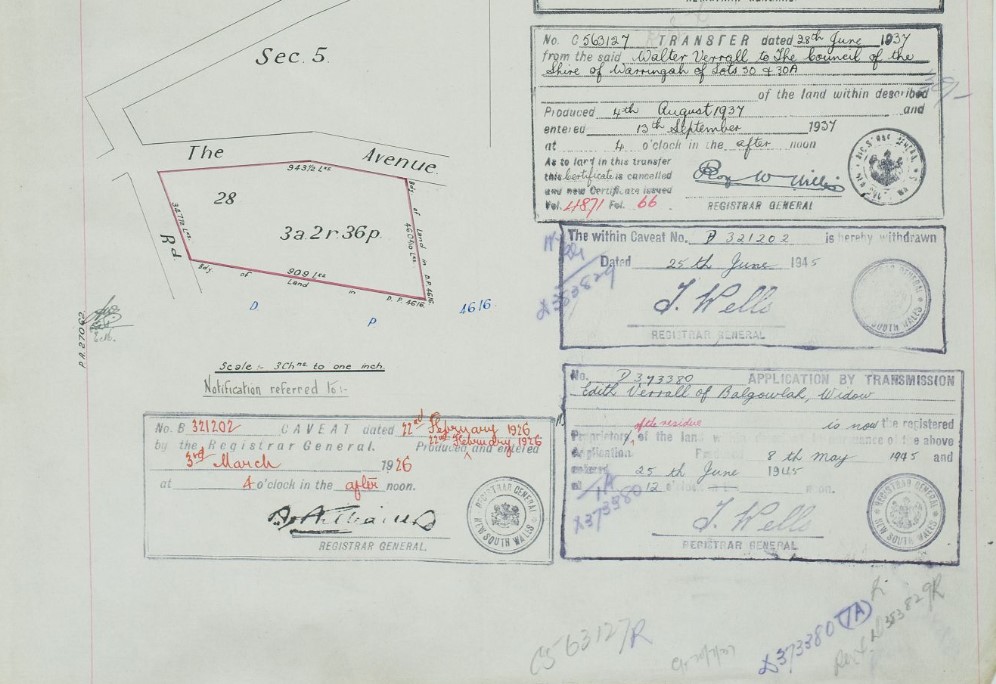 REGISTRAR GENERAL.
Sec. 5.
The Avenue
943½ Lks
28
3a. 2r. 36p.
Rd
Bdy of Land in D.P. 4616
909 Lks
Bdy of Land in D.P. 4616
D P 4616
Scale :- 3Chns to one inch.
Notification referred to:-
No. B 321202 CAVEAT dated 22nd February 1926
by the Registrar General. Produced and entered
22nd February 1926
3rd March 1926
at 4 o'clock in the after noon.
REGISTRAR GENERAL.
REGISTRAR GENERAL
NEW SOUTH WALES
No. C563127 TRANSFER dated 28th June 1937
from the said Walter Verrall to The Council of the
Shire of Warringah of Lots 30 & 30A
of the land within described
Produced 4th August 1937 and
entered 13th September 1937
at 4 o'clock in the after noon
As to land in this transfer
this Certificate is cancelled
and new Certificate issued
Vol. 4871 Fol. 66
REGISTRAR GENERAL
The within Caveat No. B 321202 is hereby withdrawn
Dated 25th June 1945
J. Wells
REGISTRAR GENERAL
No. D373380 APPLICATION BY TRANSMISSION
Edith Verrall of Balgowlah, Widow
is now the registered
Proprietor of the residue of the land
of the above
Application 8th May 1945 and
entered 25th June 1945
at 12 o'clock noon.
J. Wells
REGISTRAR GENERAL
D373380
C563127R
D373380 (1A)